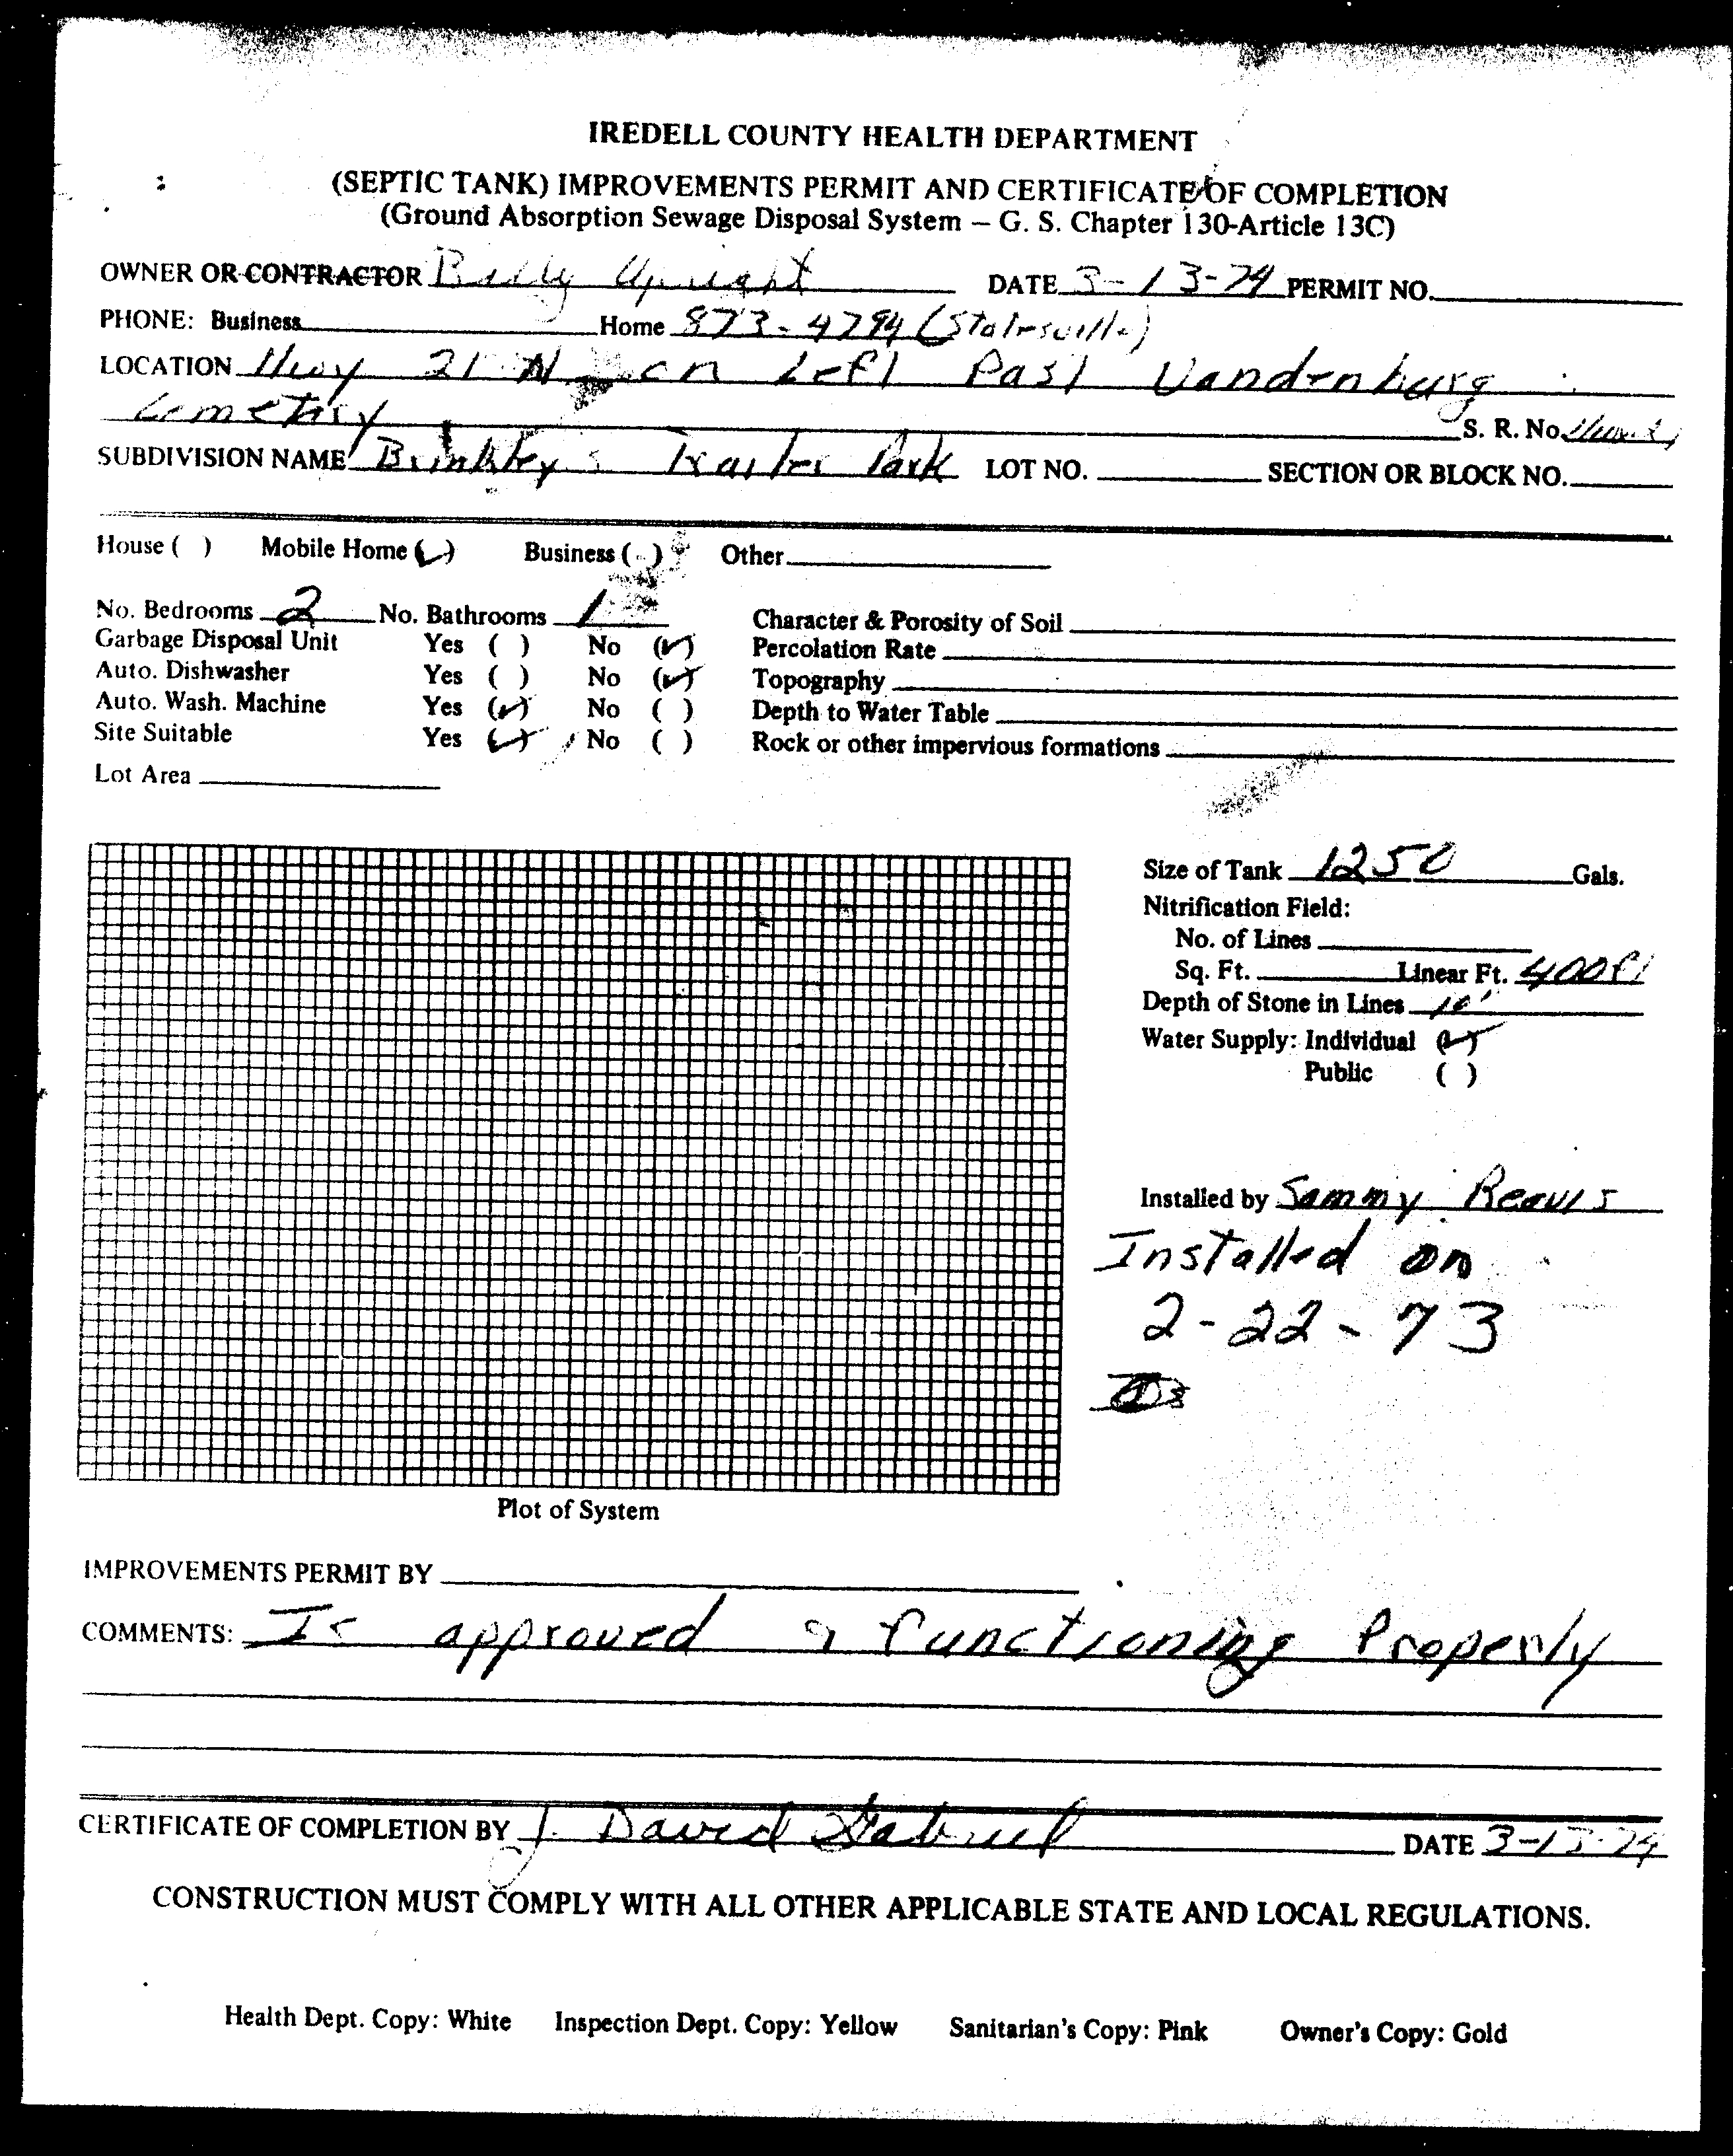 IREDELL COUNTY HEALTH DEPARTMENT
(SEPTIC TANK) IMPROVEMENTS PERMIT AND CERTIFICATE OF COMPLETION
(Ground Absorption Sewage Disposal System – G. S. Chapter 130-Article 13C)
OWNER OR CONTRACTOR Billy Upright DATE 3-13-74 PERMIT NO.
PHONE: Business Home 873-4794 (Statesville)
LOCATION Hwy 21 N on Left Past Vandenburg
Cemetry S. R. No. Hwy 21
SUBDIVISION NAME Brinkley's Trailer Park LOT NO. SECTION OR BLOCK NO.
House ( ) Mobile Home (✓) Business ( ) Other
No. Bedrooms 2 No. Bathrooms 1 Character & Porosity of Soil
Garbage Disposal Unit Yes ( ) No (✓) Percolation Rate
Auto. Dishwasher Yes ( ) No (✓) Topography
Auto. Wash. Machine Yes (✓) No ( ) Depth to Water Table
Site Suitable Yes (✓) No ( ) Rock or other impervious formations
Lot Area
Size of Tank 1250 Gals.
Nitrification Field:
No. of Lines
Sq. Ft. Linear Ft. 400 ft
Depth of Stone in Lines
Water Supply: Individual (✓)
Public ( )
Installed by Sammy Reavis
Installed on
2-22-73
Plot of System
IMPROVEMENTS PERMIT BY
COMMENTS: Is approved & functioning Properly
CERTIFICATE OF COMPLETION BY J. David Gabriel DATE 3-13-74
CONSTRUCTION MUST COMPLY WITH ALL OTHER APPLICABLE STATE AND LOCAL REGULATIONS.
Health Dept. Copy: White Inspection Dept. Copy: Yellow Sanitarian's Copy: Pink Owner's Copy: Gold